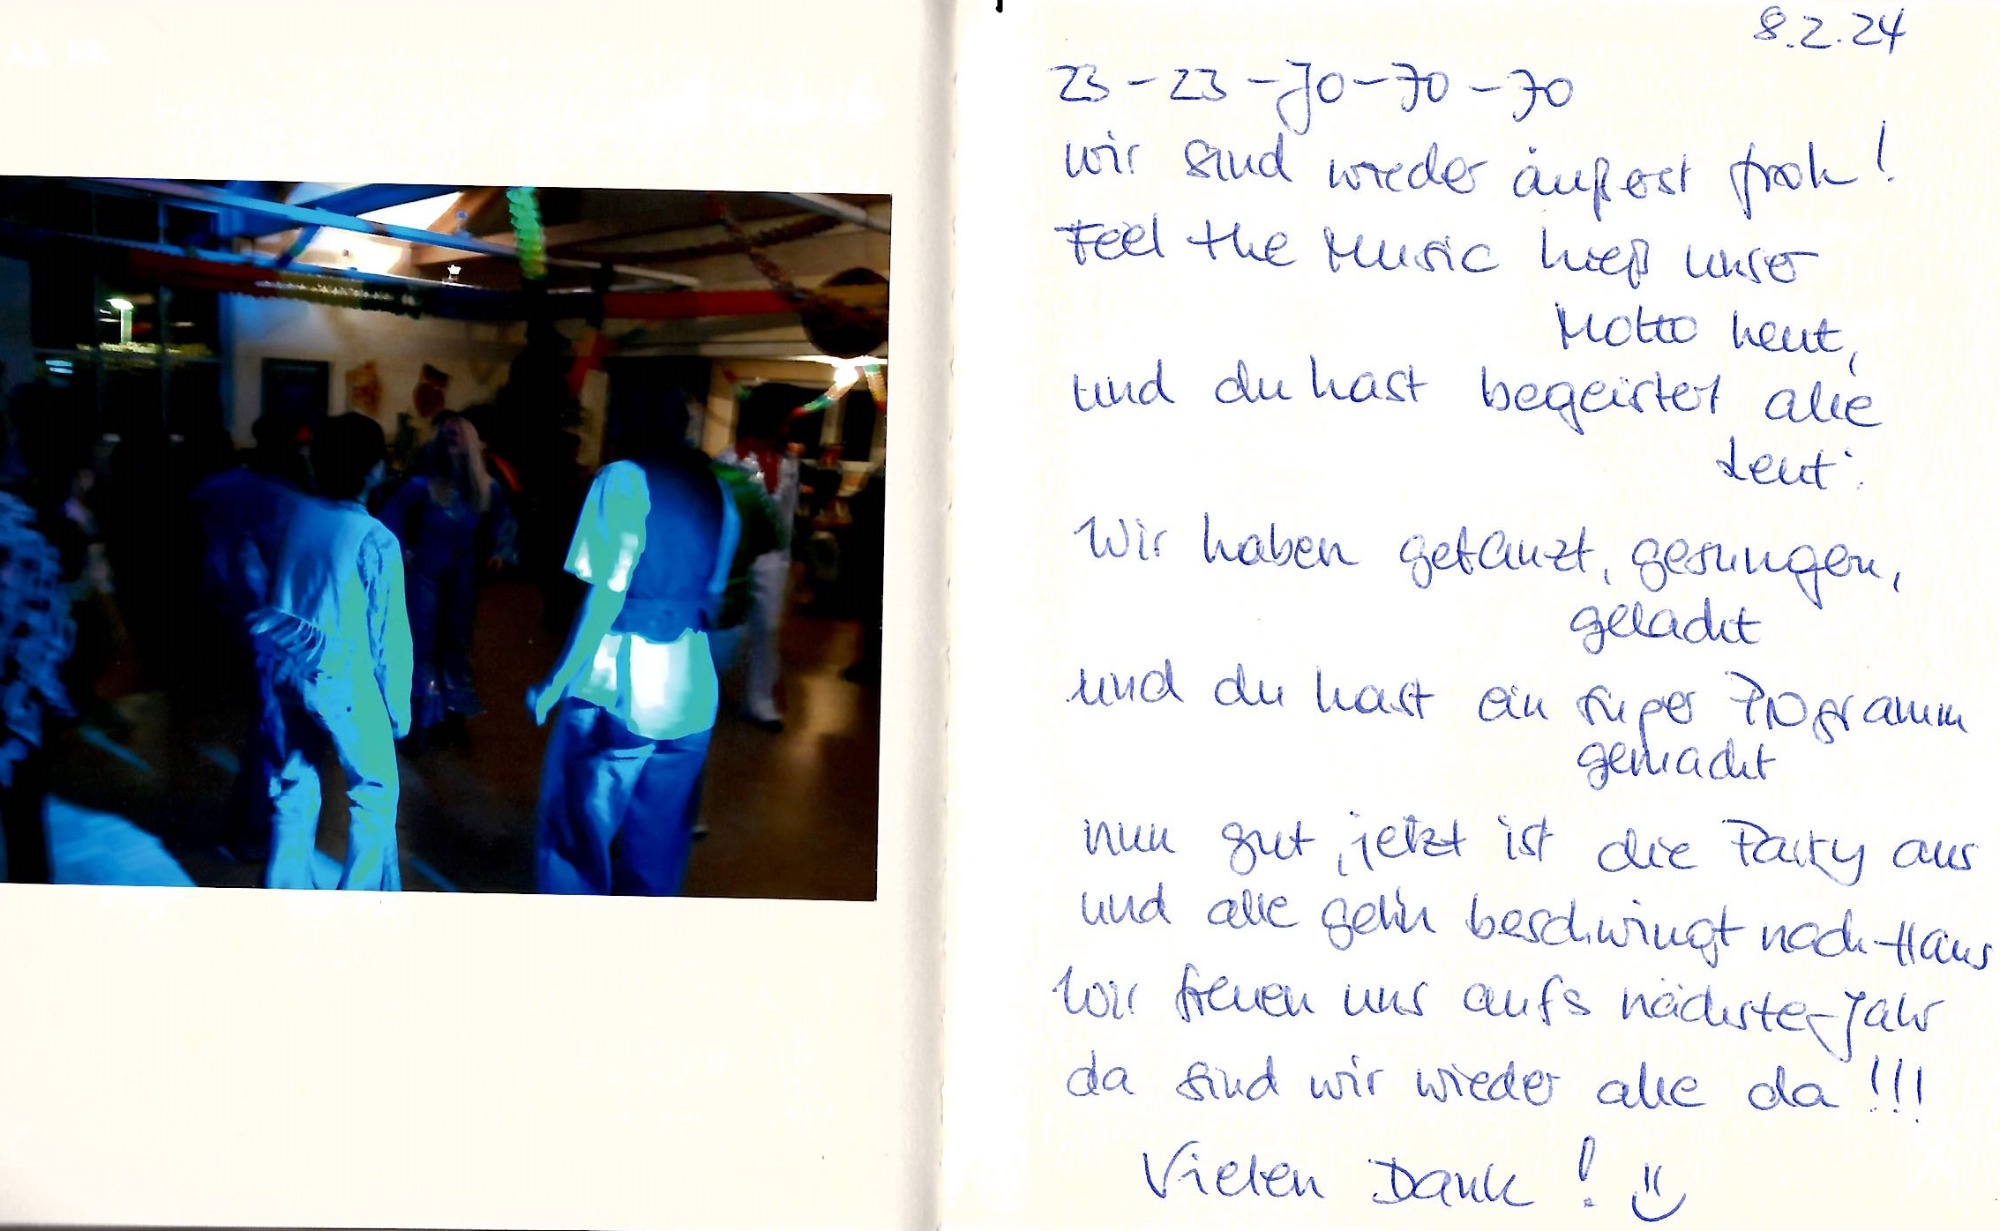 8.2.24
23 - 23 - Jo - Jo - Jo
wir sind wieder äußerst froh!
Feel the Music hieß unser
Motto heut,
und du hast begeistert alle
Leut:
Wir haben getanzt, gesungen,
gelacht
und du hast ein super Programm
gemacht
nun gut, jetzt ist die Party aus
und alle geh'n beschwingt nach Haus
Wir freuen uns aufs nächste Jahr
da sind wir wieder alle da!!!
Vielen Dank!